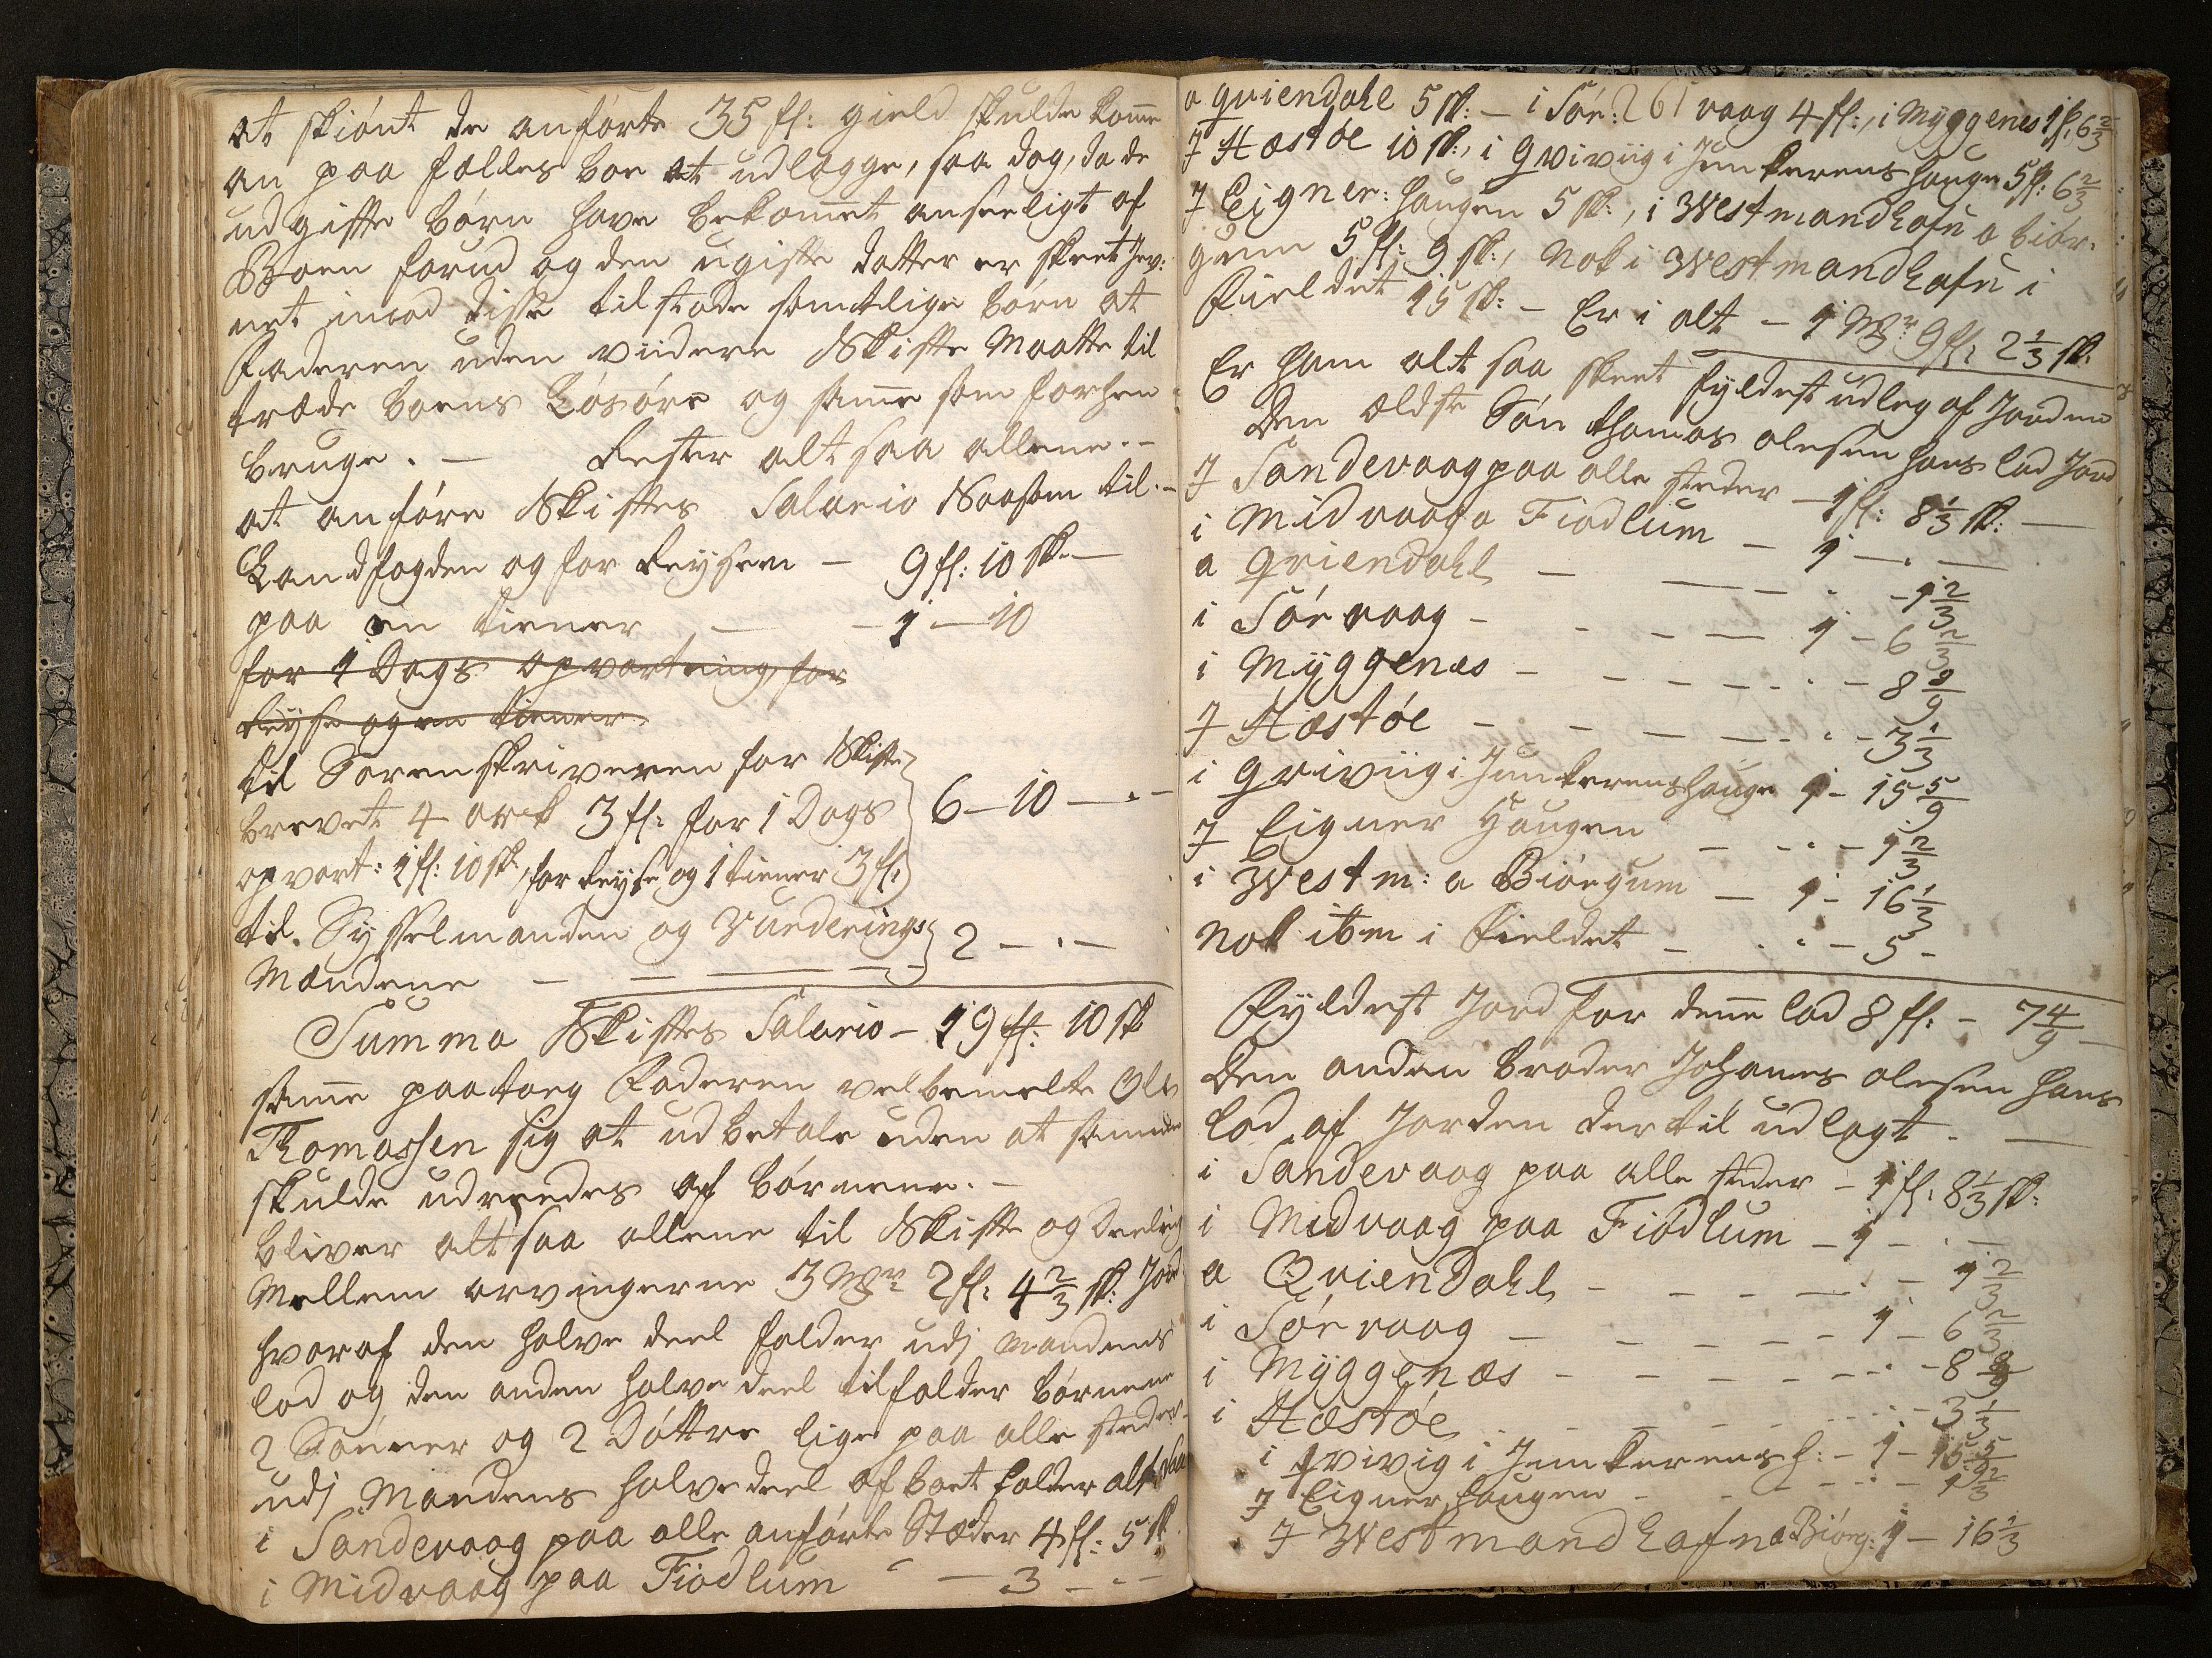 at skiønt de anførte 35 fl: gield skulde komme
an paa fælles boe at udlægge, saa dog, da de
udgifte børn have bekommet anseeligt af
Boen forud og den ugifte datter er skeet Jev:
net imod disse tilstode samtlige børn at
Faderen uden viidere Skifte Maatte til
træde boens Løsøre og samme som forhen
bruge. — Rester altsaa allene. –
at anføre Skiftes Salario Saasom til. –
Landfogden og for Reysen – 9 fl: 10 sk. —
paa en tiener — – 1 – 10
for 1 Dags opvartning for
Reyse og en tiener
til Sorenskriveren for Skifte
brevet 4 ark 3 fl: for 1 Dags } 6 – 10 – . –
opvart: 1 fl: 10 sk., for Reyse og 1 tiener 3 fl:
til. Sysselmanden og Vurderings } 2 – . –
Mændene — — —
Summa Skiftes Salario – 19 fl: 10 sk
samme paatoeg Faderen velbemelte Ole
Thomassen sig at udbetale uden at samme
skulde udreedes af børnene. –
bliver altsaa allene til Skifte og Deeling
Mellem arvingerne 3 Mr 2 fl: 4 2/3 sk: Jord
hvoraf den halve deel falder udj Mandens
lod og den anden halve deel tilfalder børnene
2 Sønner og 2 Døttre lige paa alle steder
udj Mandens halvedeel af boet falder altsaa
i Sandevaag paa alle anførte Stæder 4 fl: 5 sk
i Midvaag paa Fiodlum – 3 – . –
a qviendahl 5 sk: – i Sør: 261 vaag 4 fl:, i Myggenes 1 fl, 6 2/3
J Hæstøe 10 sk:, i Qviviig i Junkerens hauge 5 fl: 6 2/3
J Eigner: Haugen 5 sk:, i Westmandhafn a biør:
gum 5 fl: 9 sk:, Nok i Westmandhafn i
Fieldet 15 sk: – Er i alt – 1 Mr 9 fl: 2 1/3 sk.
Er ham alt saa skeet fyldest udleg af Jorden
Den ældste Søn thomas olesen hans lod Jord
J Sandevaag paa alle steder – 1 fl: 8 1/3 sk: —
i Midvaag a Fiodlum – 1 – . —
a qviendahl – — – . – 1 2/3
i Sørvaag – – – — 1 – 6 2/3
i Myggenæs – – – – . . – 8 8/9
J Hæstøe – – – – . . – 3 1/3
i qviviig i Junkerenshauge 1 – 15 5/9
J Eigner Haugen – . . – 1 2/3
i Westm: a Biørgum – 1 – 16 1/3
Nok ibm i Fieldet – . . – 5 –
Fyldest Jord for denne lod 8 fl: – 7 4/9
Den anden broder Johannes olesen hans
lod af Jorden dertil udlagt. —
i Sandevaag paa alle steder – 1 fl: 8 1/3 sk:
i Midvaag paa Fiodlum – 1 – . –
a Qviendahl – – – — . – 1 2/3
i Sørvaag – – – – – 1 – 6 2/3
i Myggenæs – – – – . . – 8 8/9
i Hæstøe – – – . . – 3 1/3
i qvivig i Junkerens h: – 1 – 15 5/9
J Eigner haugen – – – . . – 1 2/3
J Westmandhafn a Biørg: 1 – 16 1/3